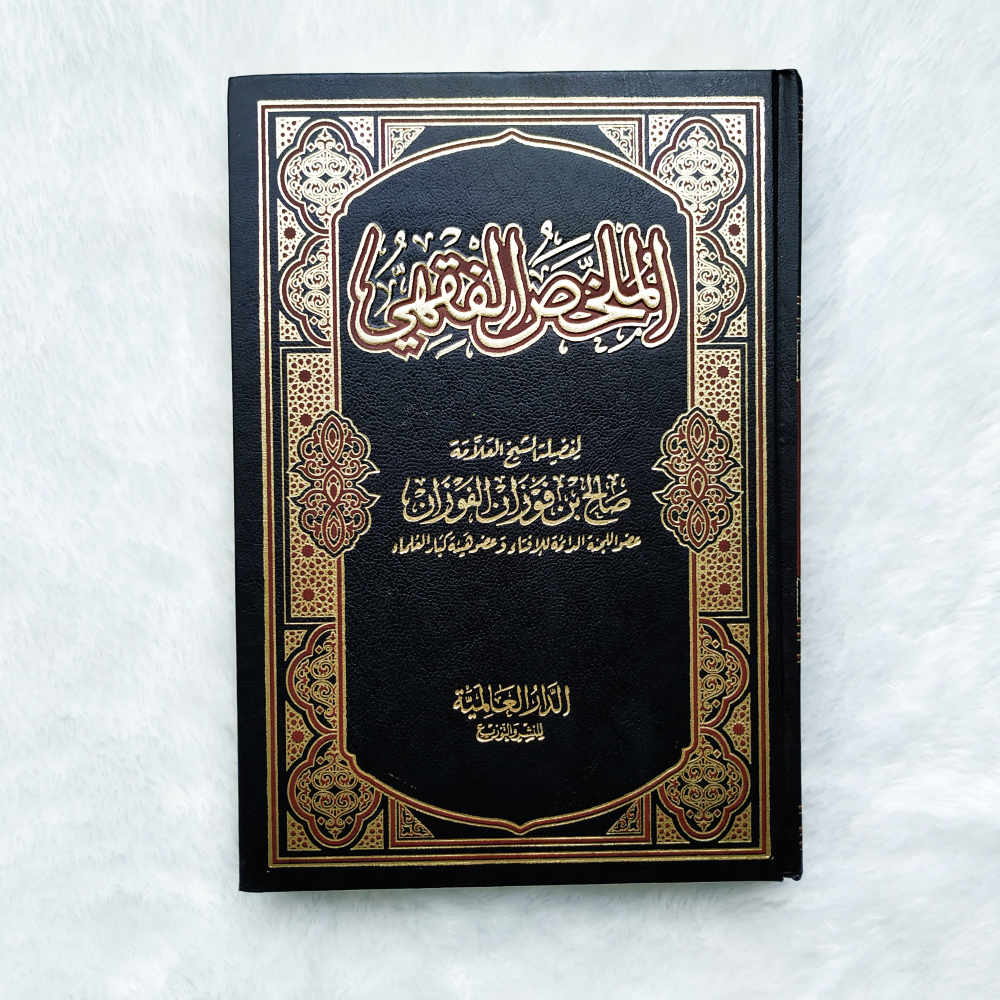 المُلخَّصُ الفِقْهِيُّ
لفضيلة الشيخ العلَّامة
صَالِح بْن فَوْزَان الفَوْزَان
عضو اللجنة الدائمة للإفتاء وعضو هيئة كبار العلماء
الدَّارُ العَالمِيَّة
للنشر والتوزيع